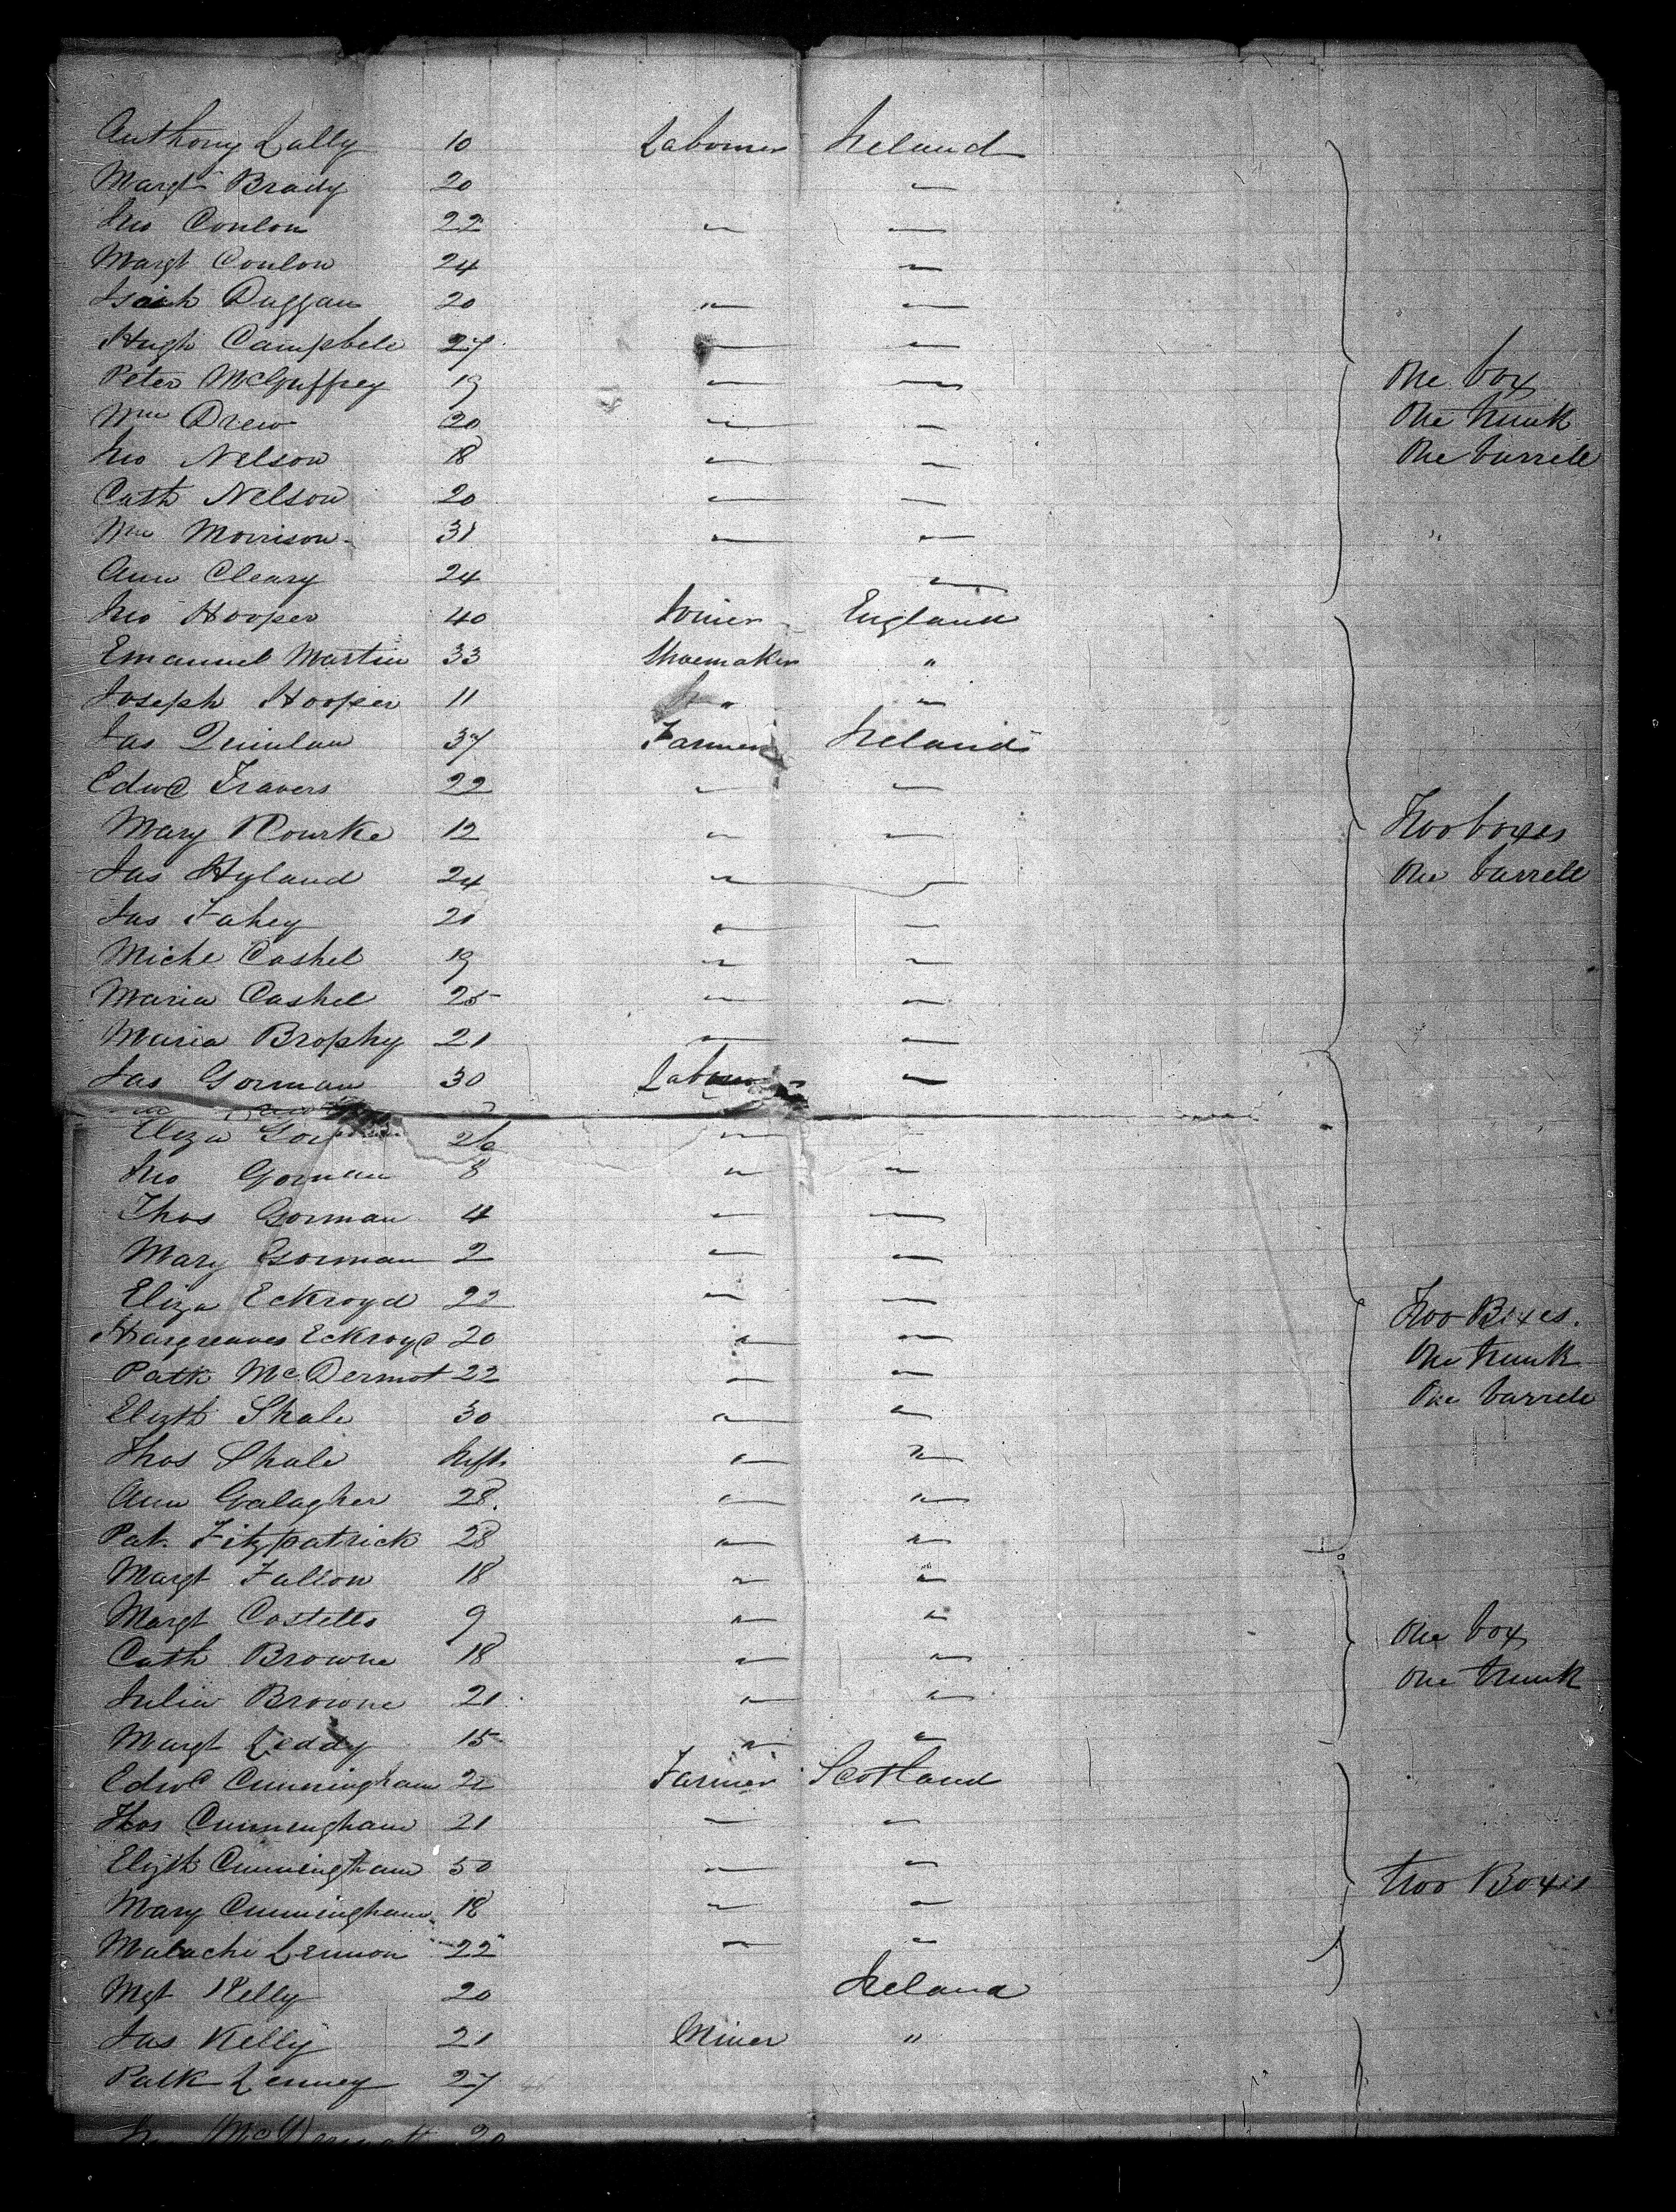 Anthony Lally 10 Labourer Ireland
Margt Brady 20 "
Jno Conlon 22 " "
Margt Conlon 24 "
Isaih Duggan 20 " "
Hugh Campbell 27 " "
Peter McGuffrey 19 " " One box
Wm Drew 20 " " One trunk
Jno Nelson 18 " " One barrell
Cath Nelson 20 " "
Wm Morrison 31 " " "
Ann Cleary 24 "
Jno Hooper 40 Joiner England
Emanuel Martin 33 Shoemaker "
Joseph Hooper 11 " "
Jas Quinlan 37 Farmer Ireland
Edwd Travers 22 " "
Mary Rourke 12 " " Two boxes
Jas Hyland 24 " " One barrell
Jas Fahey 20 " "
Michl Cashel 19 " "
Maria Cashel 25 " "
Maria Brophy 21 " "
Jas Gorman 30 Labourer "
Eliza Gorman 26 "
Jno Gorman 8 " "
Thos Gorman 4 " "
Mary Gorman 2 " "
Eliza Eckroyd 22 " " Two Boxes.
Hargreaves Eckroyd 20 " " One trunk
Patk McDermot 22 " " One barrell
Elizth Shale 30 " "
Thos Shale Inft " "
Ann Galagher 28 " "
Pat. Fitzpatrick 28 " "
Margt Fallon 18 " "
Margt Costello 9 " " One box
Cath Browne 18 " " One trunk
Julia Browne 21 " "
Margt Leddy 15 " "
Edwd Cunningham 22 Farmer Scotland
Thos Cunningham 21 " "
Elizth Cunningham 50 " " Two Boxes
Mary Cunningham 18 " "
Malachi Lennon 22 " "
Mgt Kelly 20 Ireland
Jas Kelly 21 Miner "
Patk Lenney 27
McDermott 20